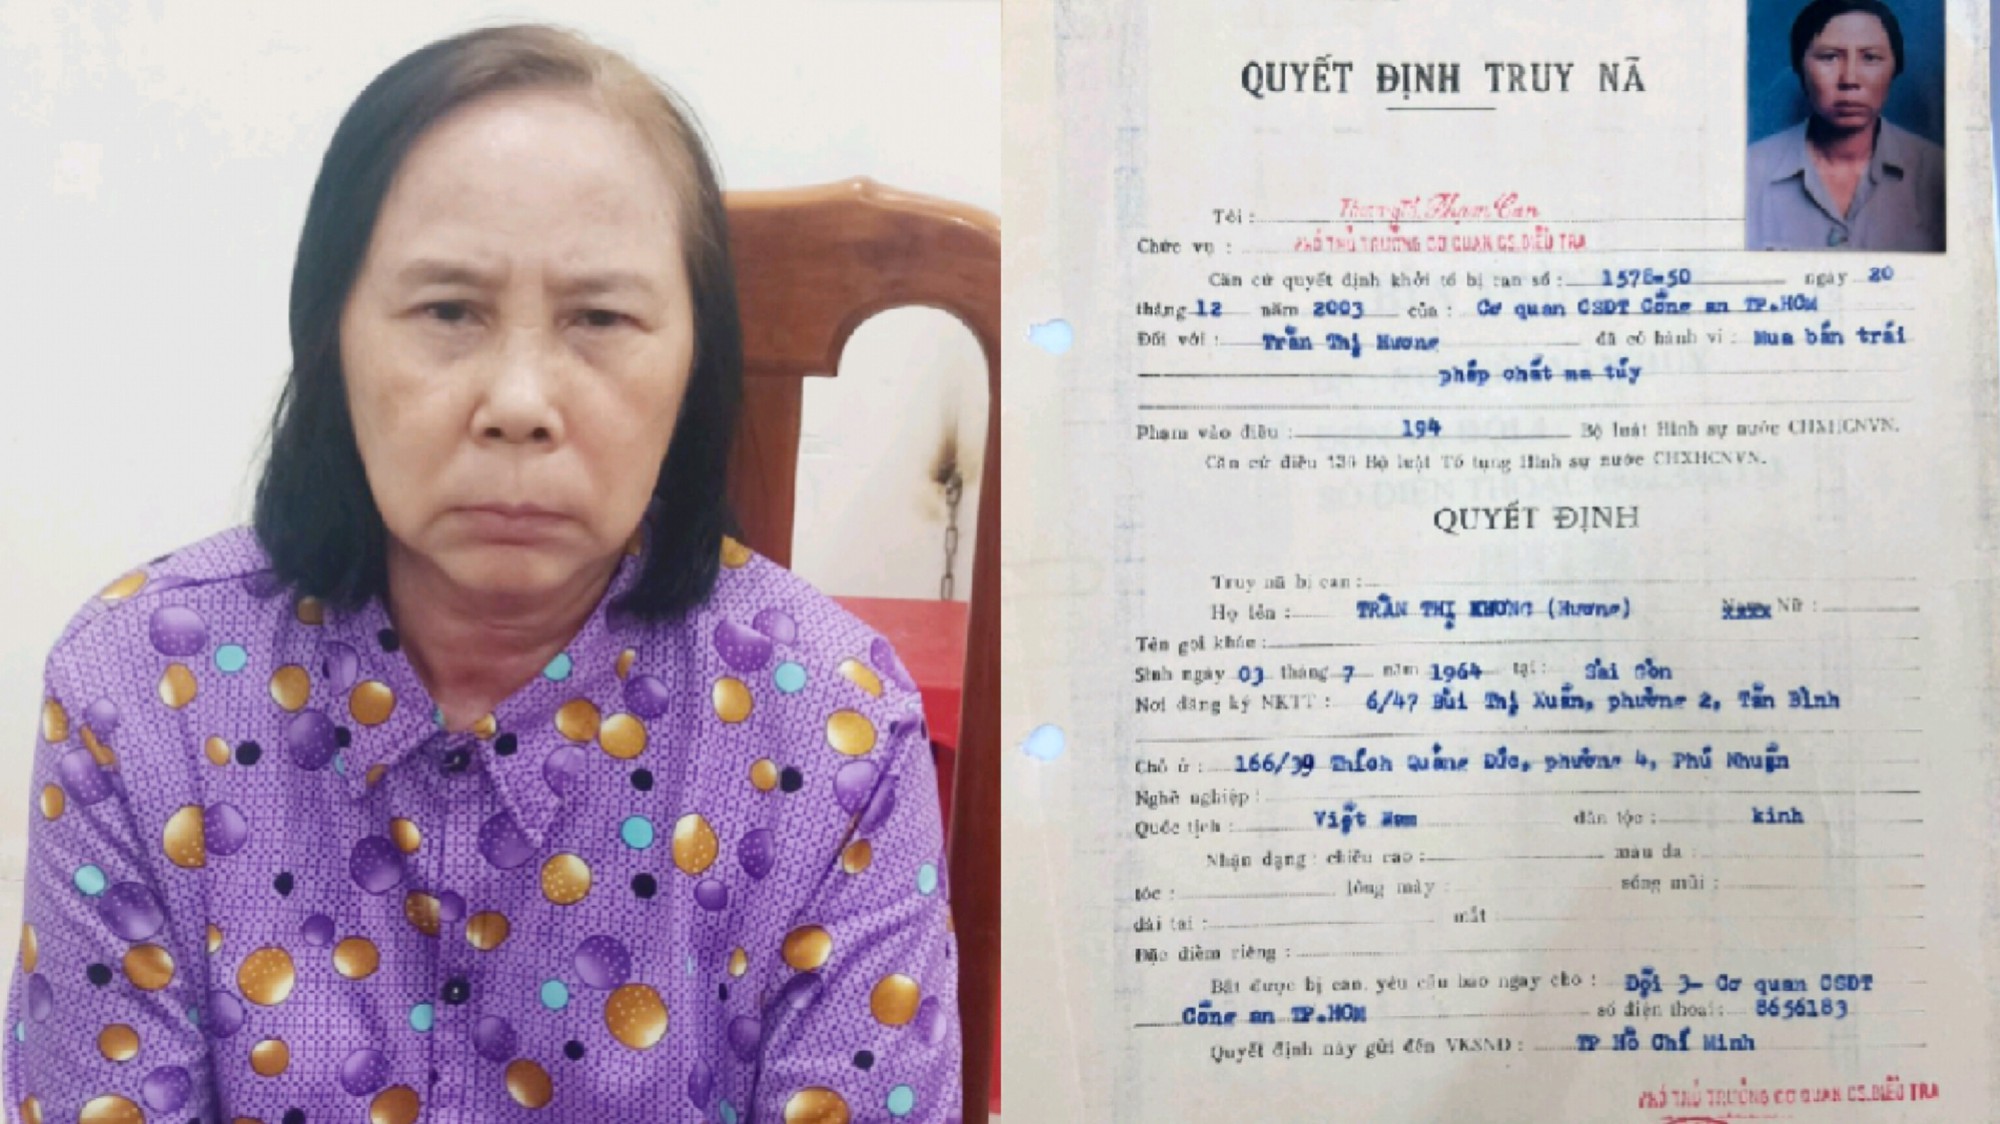 QUYẾT ĐỊNH TRUY NÃ
Tôi : Phạm Can
Chức vụ : PHÓ THỦ TRƯỞNG CƠ QUAN CS.ĐIỀU TRA
Căn cứ quyết định khởi tố bị can số : 1578-50 ngày 20
tháng 12 năm 2003 của : Cơ quan CSĐT Công an TP.HCM
Đối với : Trần Thị Hương đã có hành vi : Mua bán trái
phép chất ma túy
Phạm vào điều : 194 Bộ luật Hình sự nước CHXHCNVN.
Căn cứ điều 136 Bộ luật Tố tụng Hình sự nước CHXHCNVN.
QUYẾT ĐỊNH
Truy nã bị can :
Họ tên : TRẦN THỊ KHƯƠNG (Hương) Nữ :
Tên gọi khác :
Sinh ngày 03 tháng 7 năm 1964 tại : Sài Gòn
Nơi đăng ký NKTT : 6/47 Bùi Thị Xuân, phường 2, Tân Bình
Chỗ ở : 166/39 Thích Quảng Đức, phường 4, Phú Nhuận
Nghề nghiệp :
Quốc tịch : Việt Nam dân tộc : kinh
Nhận dạng : chiều cao : màu da :
tóc : lông mày : sống mũi :
dái tai : mắt :
Đặc điểm riêng :
Bắt được bị can, yêu cầu báo ngay cho : Đội 3- Cơ quan CSĐT
Công an TP.HCM số điện thoại : 8656183
Quyết định này gửi đến VKSND : TP Hồ Chí Minh
PHÓ THỦ TRƯỞNG CƠ QUAN CS.ĐIỀU TRA